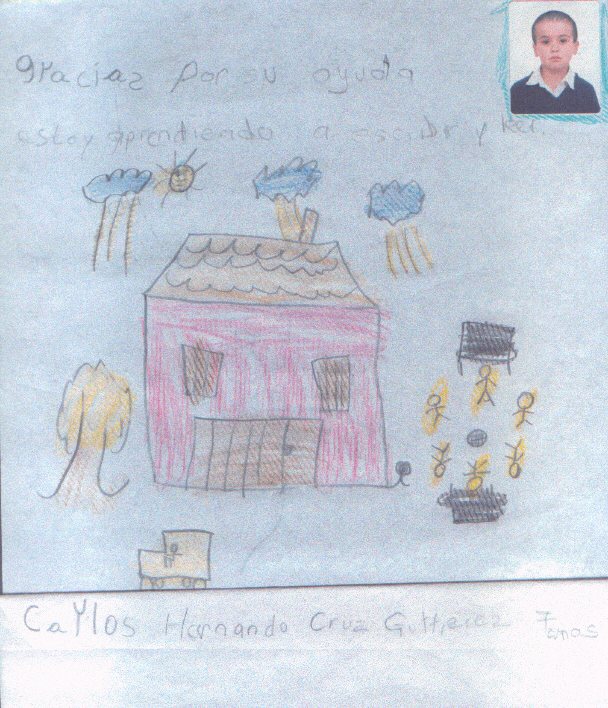 graciaz por su ayuda
estoy aprendiendo a escribir y leer.
CaYlos Hernando Cruz Gutierrez 7anos